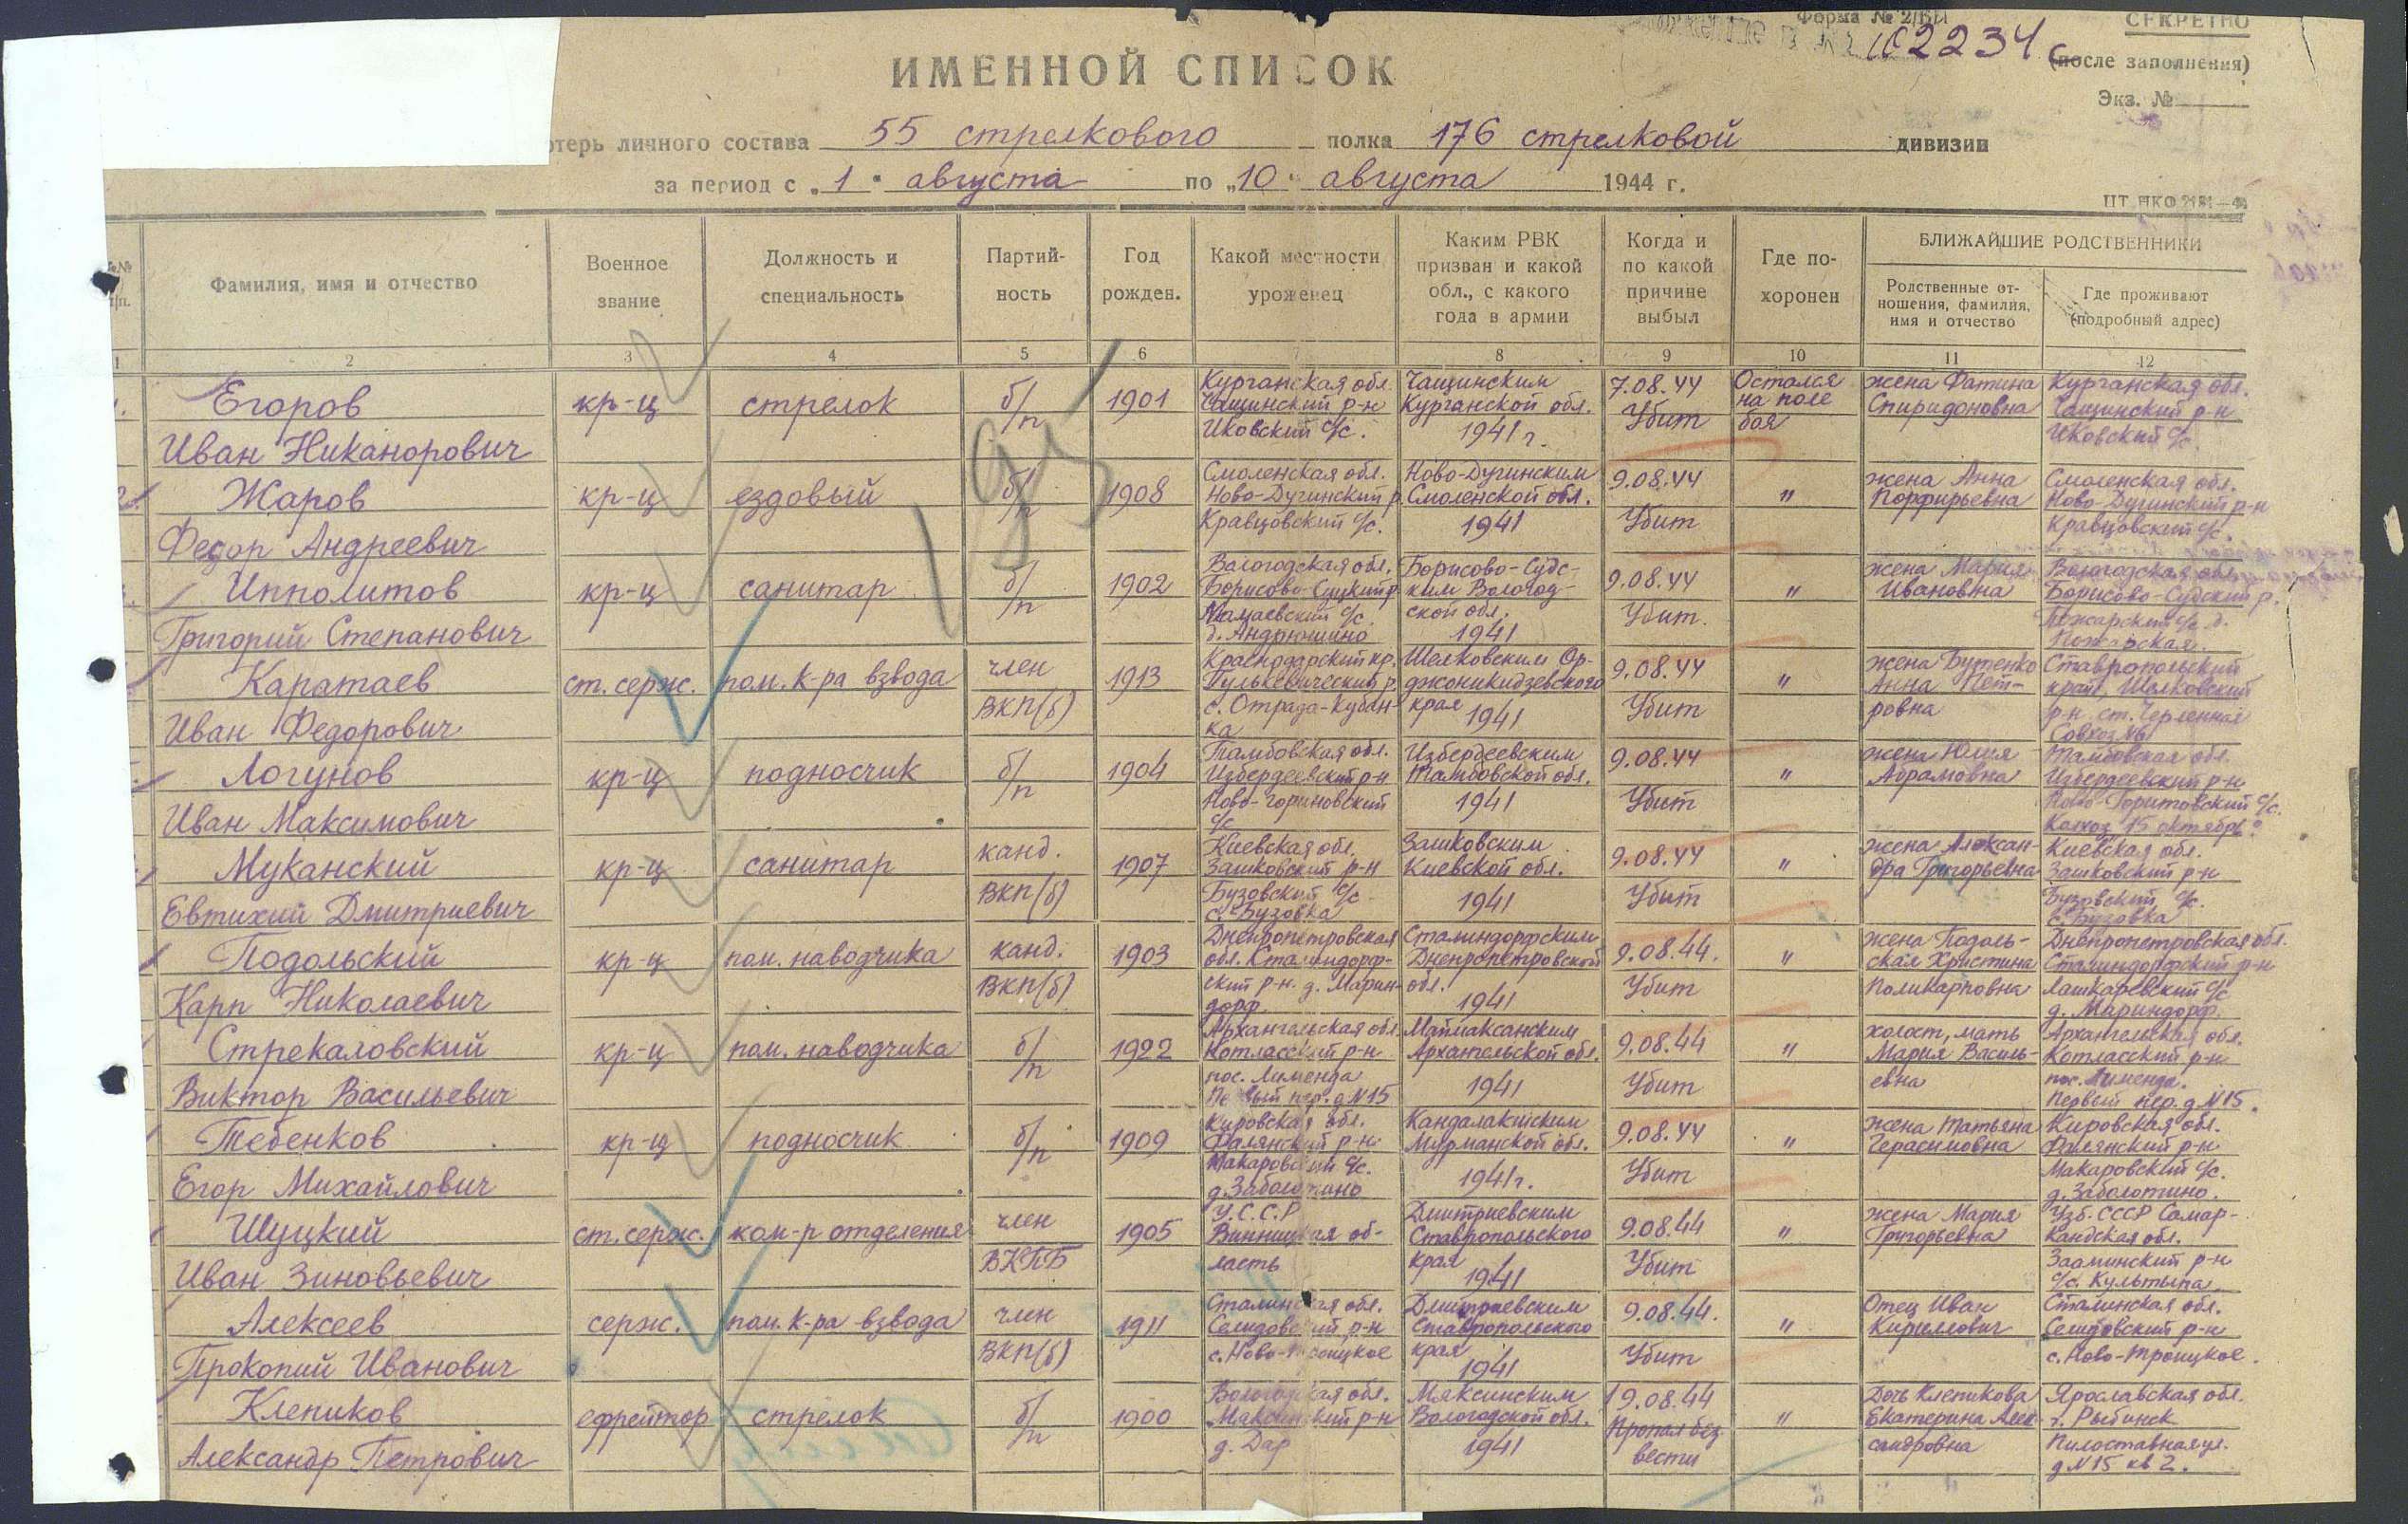 Форма № 2/БП
СЕКРЕТНО
2234с
(после заполнения)
Экз. №
ИМЕННОЙ СПИСОК
отерь личного состава 55 стрелкового полка 176 стрелковой дивизии
за период с „1" августа по „10" августа 1944 г.
№№ п/п.
Фамилия, имя и отчество
Военное звание
Должность и специальность
Партий-ность
Год рожден.
Какой местности уроженец
Каким РВК призван и какой обл., с какого года в армии
Когда и по какой причине выбыл
Где по-хоронен
БЛИЖАЙШИЕ РОДСТВЕННИКИ
Родственные от-ношения, фамилия, имя и отчество
Где проживают (подробный адрес)
1 2 3 4 5 6 7 8 9 10 11 12
Егоров кр-ц стрелок б/п 1901 Курганская обл. Чащинским 7.08.44 Остался жена Фатина Курганская обл.
Чащинский р-н Курганской обл. Убит на поле Спиридоновна Чащинский р-н
Иван Никанорович Иковский с/с. 1941 г. боя Иковский с/с.
Жаров кр-ц ездовый б/п 1908 Смоленская обл. Ново-Дугинским 9.08.44 " жена Анна Смоленская обл.
Ново-Дугинский р. Смоленской обл. Порфирьевна Ново-Дугинский р-н
Федор Андреевич Кравцовский с/с. 1941 Убит Кравцовский с/с.
Ипполитов кр-ц санитар б/п 1902 Вологодская обл. Борисово-Судс- 9.08.44 " жена Мария Вологодская обл.
Борисово-Судский р. ким Вологод- Ивановна Борисово-Судский р.
Григорий Степанович с/с. ской обл. Убит. Пожарский с/с. д.
д. Андрюшино 1941 Пожарская.
Каратаев ст. серж. пом. к-ра взвода член 1913 Краснодарский кр. Шелковским Ор- 9.08.44 " жена Бутенко Ставропольский
Гулькевический р. джоникидзевского Анна Пет- край, Шелковский
Иван Федорович ВКП(б) с. Отрада-Кубан- края Убит ровна р-н ст. Червленная
ка 1941 Совхоз №1
Логунов кр-ц подносчик б/п 1904 Тамбовская обл. Избердеевским 9.08.44 " жена Юлия Тамбовская обл.
Избердеевский р-н Тамбовской обл. Абрамовна Избердеевский р-н
Иван Максимович Ново-Гориновский 1941 Убит Ново-Горитовский с/с.
с/с Колхоз 15 октябрь
Муканский кр-ц санитар канд. 1907 Киевская обл. Зашковским 9.08.44 " жена Алексан- Киевская обл.
Зашковский р-н Киевской обл. дра Григорьевна Зашковский р-н
Евтихий Дмитриевич ВКП(б) Бузовский с/с 1941 Убит Бузовский с/с.
с. Бузовка с. Бузовка
Подольский кр-ц пом. наводчика канд. 1903 Днепропетровская Сталиндорфским 9.08.44. " жена Подоль- Днепропетровская обл.
обл. Сталиндорф- Днепропетровской ская Христина Сталиндорфский р-н
Карп Николаевич ВКП(б) ский р-н. д. Марин- обл. Убит Поликарповна Лашкаревский с/с
дорф. 1941 д. Мариндорф.
Стрекаловский кр-ц пом. наводчика б/п 1922 Архангельская обл. Маймаксанским 9.08.44 " холост, мать Архангельская обл.
Котласский р-н Архангельской обл. Мария Василь- Котласский р-н
Виктор Васильевич пос. Лименда 1941 Убит евна пос. Лименда.
Первый пер. д N 15 Первый пер. д N 15.
Тебенков кр-ц подносчик б/п 1909 Кировская обл. Кандалакшским 9.08.44 " жена Татьяна Кировская обл.
Фалянский р-н Мурманской обл. Герасимовна Фалянский р-н
Егор Михайлович Макаровский с/с. 1941 г. Убит Макаровский с/с.
д. Заболотино д. Заболотино.
Шуцкий ст. серж. ком-р отделения член 1905 У.С.С.Р Дмитриевским 9.08.44 " жена Мария Узб. СССР Самар-
Винницкая об- Ставропольского Григорьевна кандская обл.
Иван Зиновьевич ВКПБ ласть края Убит Зааминский р-н
1941 с/с. Культыпа
Алексеев серж. пом. к-ра взвода член 1911 Сталинская обл. Дмитриевским 9.08.44. " Отец Иван Сталинская обл.
Селидовский р-н Ставропольского Кириллович Селидовский р-н
Прокопий Иванович ВКП(б) с. Ново-Троицкое края 1941 Убит с. Ново-Троицкое.
Клепиков ефрейтор стрелок б/п 1900 Вологодская обл. Мяксинским 9.08.44 " Дочь Клепикова Ярославская обл.
Мяксинский р-н Вологодской обл. Пропал без Екатерина Алек- г. Рыбинск
Александр Петрович д. Дар 1941 вести сандровна Пилоставная ул.
д N 15 кв 2.